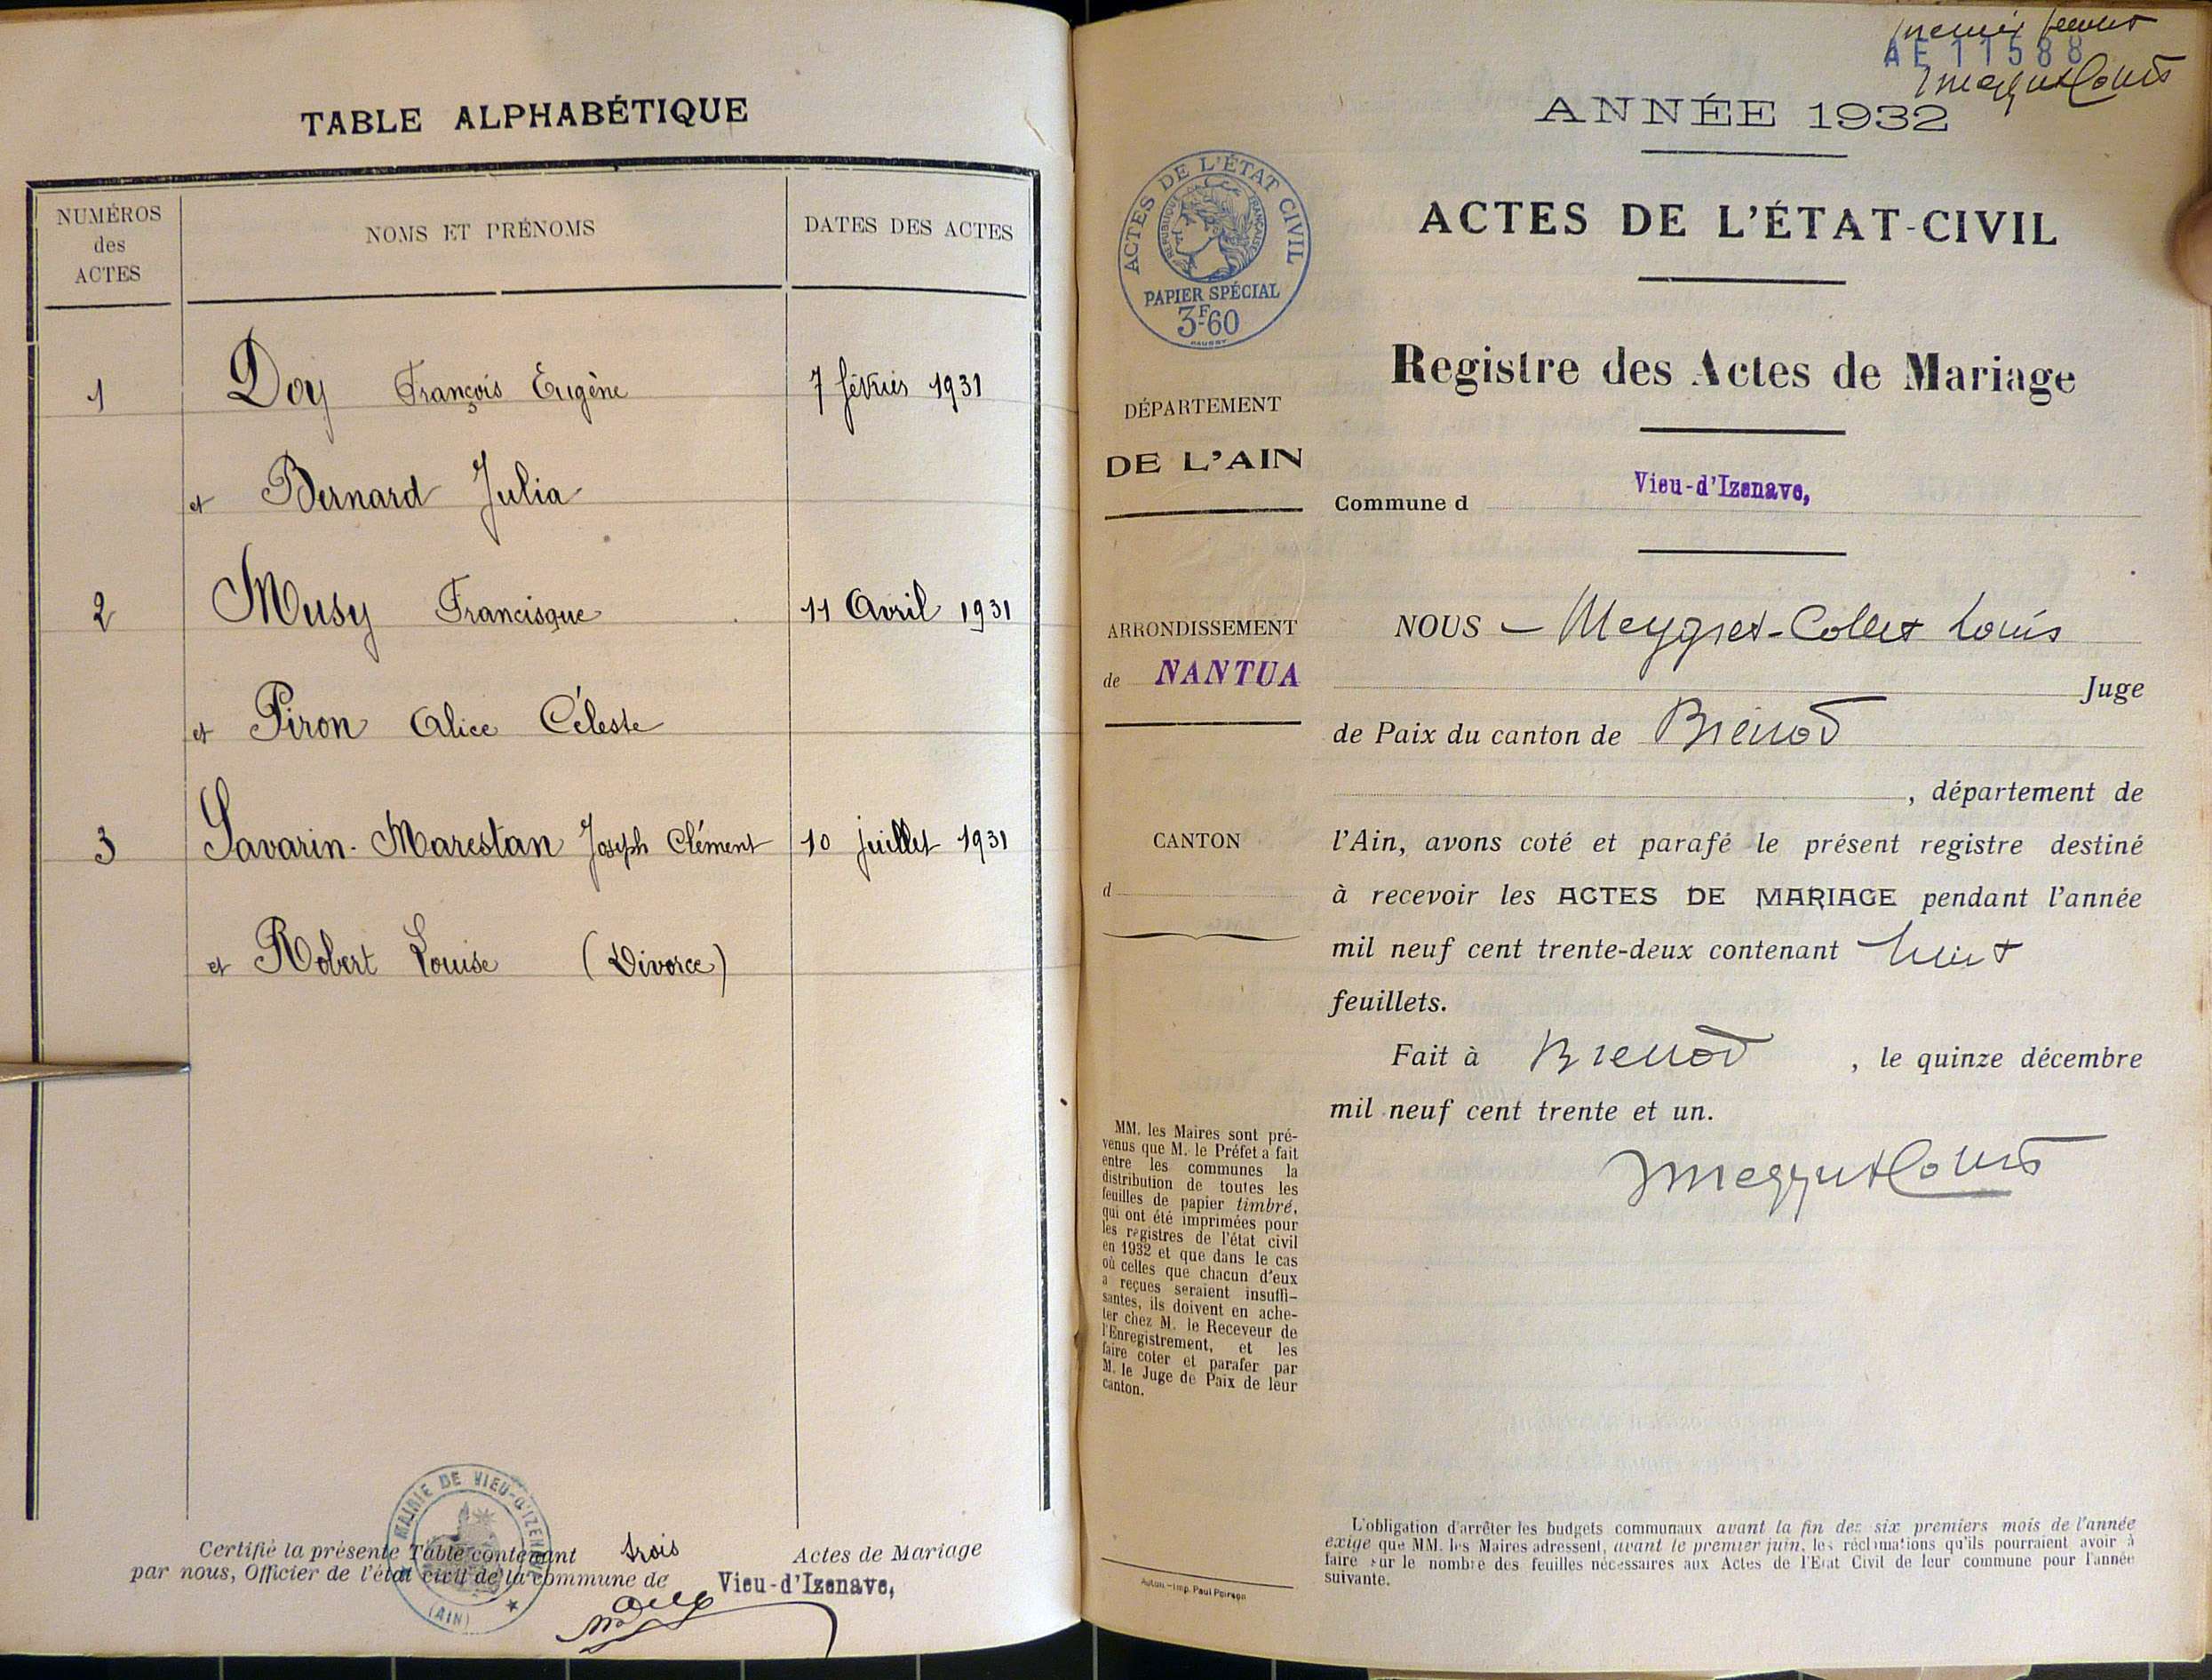 TABLE ALPHABÉTIQUE
NUMÉROS
des
ACTES
NOMS ET PRÉNOMS
DATES DES ACTES
1 Doy François Eugène 7 février 1931
et Bernard Julia
2 Musy Francisque 11 Avril 1931
et Piron Alice Céleste
3 Savarin-Marestan Joseph Clément 10 juillet 1931
et Robert Louise (Divorce)
MAIRIE DE VIEU-d'IZENAVE
(AIN)
Certifié la présente Table contenant trois Actes de Mariage
par nous, Officier de l'état civil de la commune de Vieu-d'Izenave,
premier feuillet
AE 11588
ANNÉE 1932
ACTES DE L'ÉTAT-CIVIL
Registre des Actes de Mariage
ACTES DE L'ÉTAT CIVIL
RÉPUBLIQUE FRANÇAISE
PAPIER SPÉCIAL
3F60
DÉPARTEMENT
DE L'AIN
Commune d Vieu-d'Izenave,
ARRONDISSEMENT
de NANTUA
CANTON
d
NOUS – Meygret-Collet Louis
Juge
de Paix du canton de Brénod
, département de
l'Ain, avons coté et parafé le présent registre destiné
à recevoir les ACTES DE MARIAGE pendant l'année
mil neuf cent trente-deux contenant huit
feuillets.
Fait à Brenod , le quinze décembre
mil neuf cent trente et un.
MM. les Maires sont pré-
venus que M. le Préfet a fait
entre les communes la
distribution de toutes les
feuilles de papier timbré,
qui ont été imprimées pour
les registres de l'état civil
en 1932 et que dans le cas
où celles que chacun d'eux
a reçues seraient insuffi-
santes, ils doivent en ache-
ter chez M. le Receveur de
l'Enregistrement, et les
faire coter et parafer par
M. le Juge de Paix de leur
canton.
Autun.-Imp. Paul Poirson
L'obligation d'arrêter les budgets communaux avant la fin des six premiers mois de l'année
exige que MM. les Maires adressent, avant le premier juin, les réclamations qu'ils pourraient avoir à
faire sur le nombre des feuilles nécessaires aux Actes de l'Etat Civil de leur commune pour l'année
suivante.